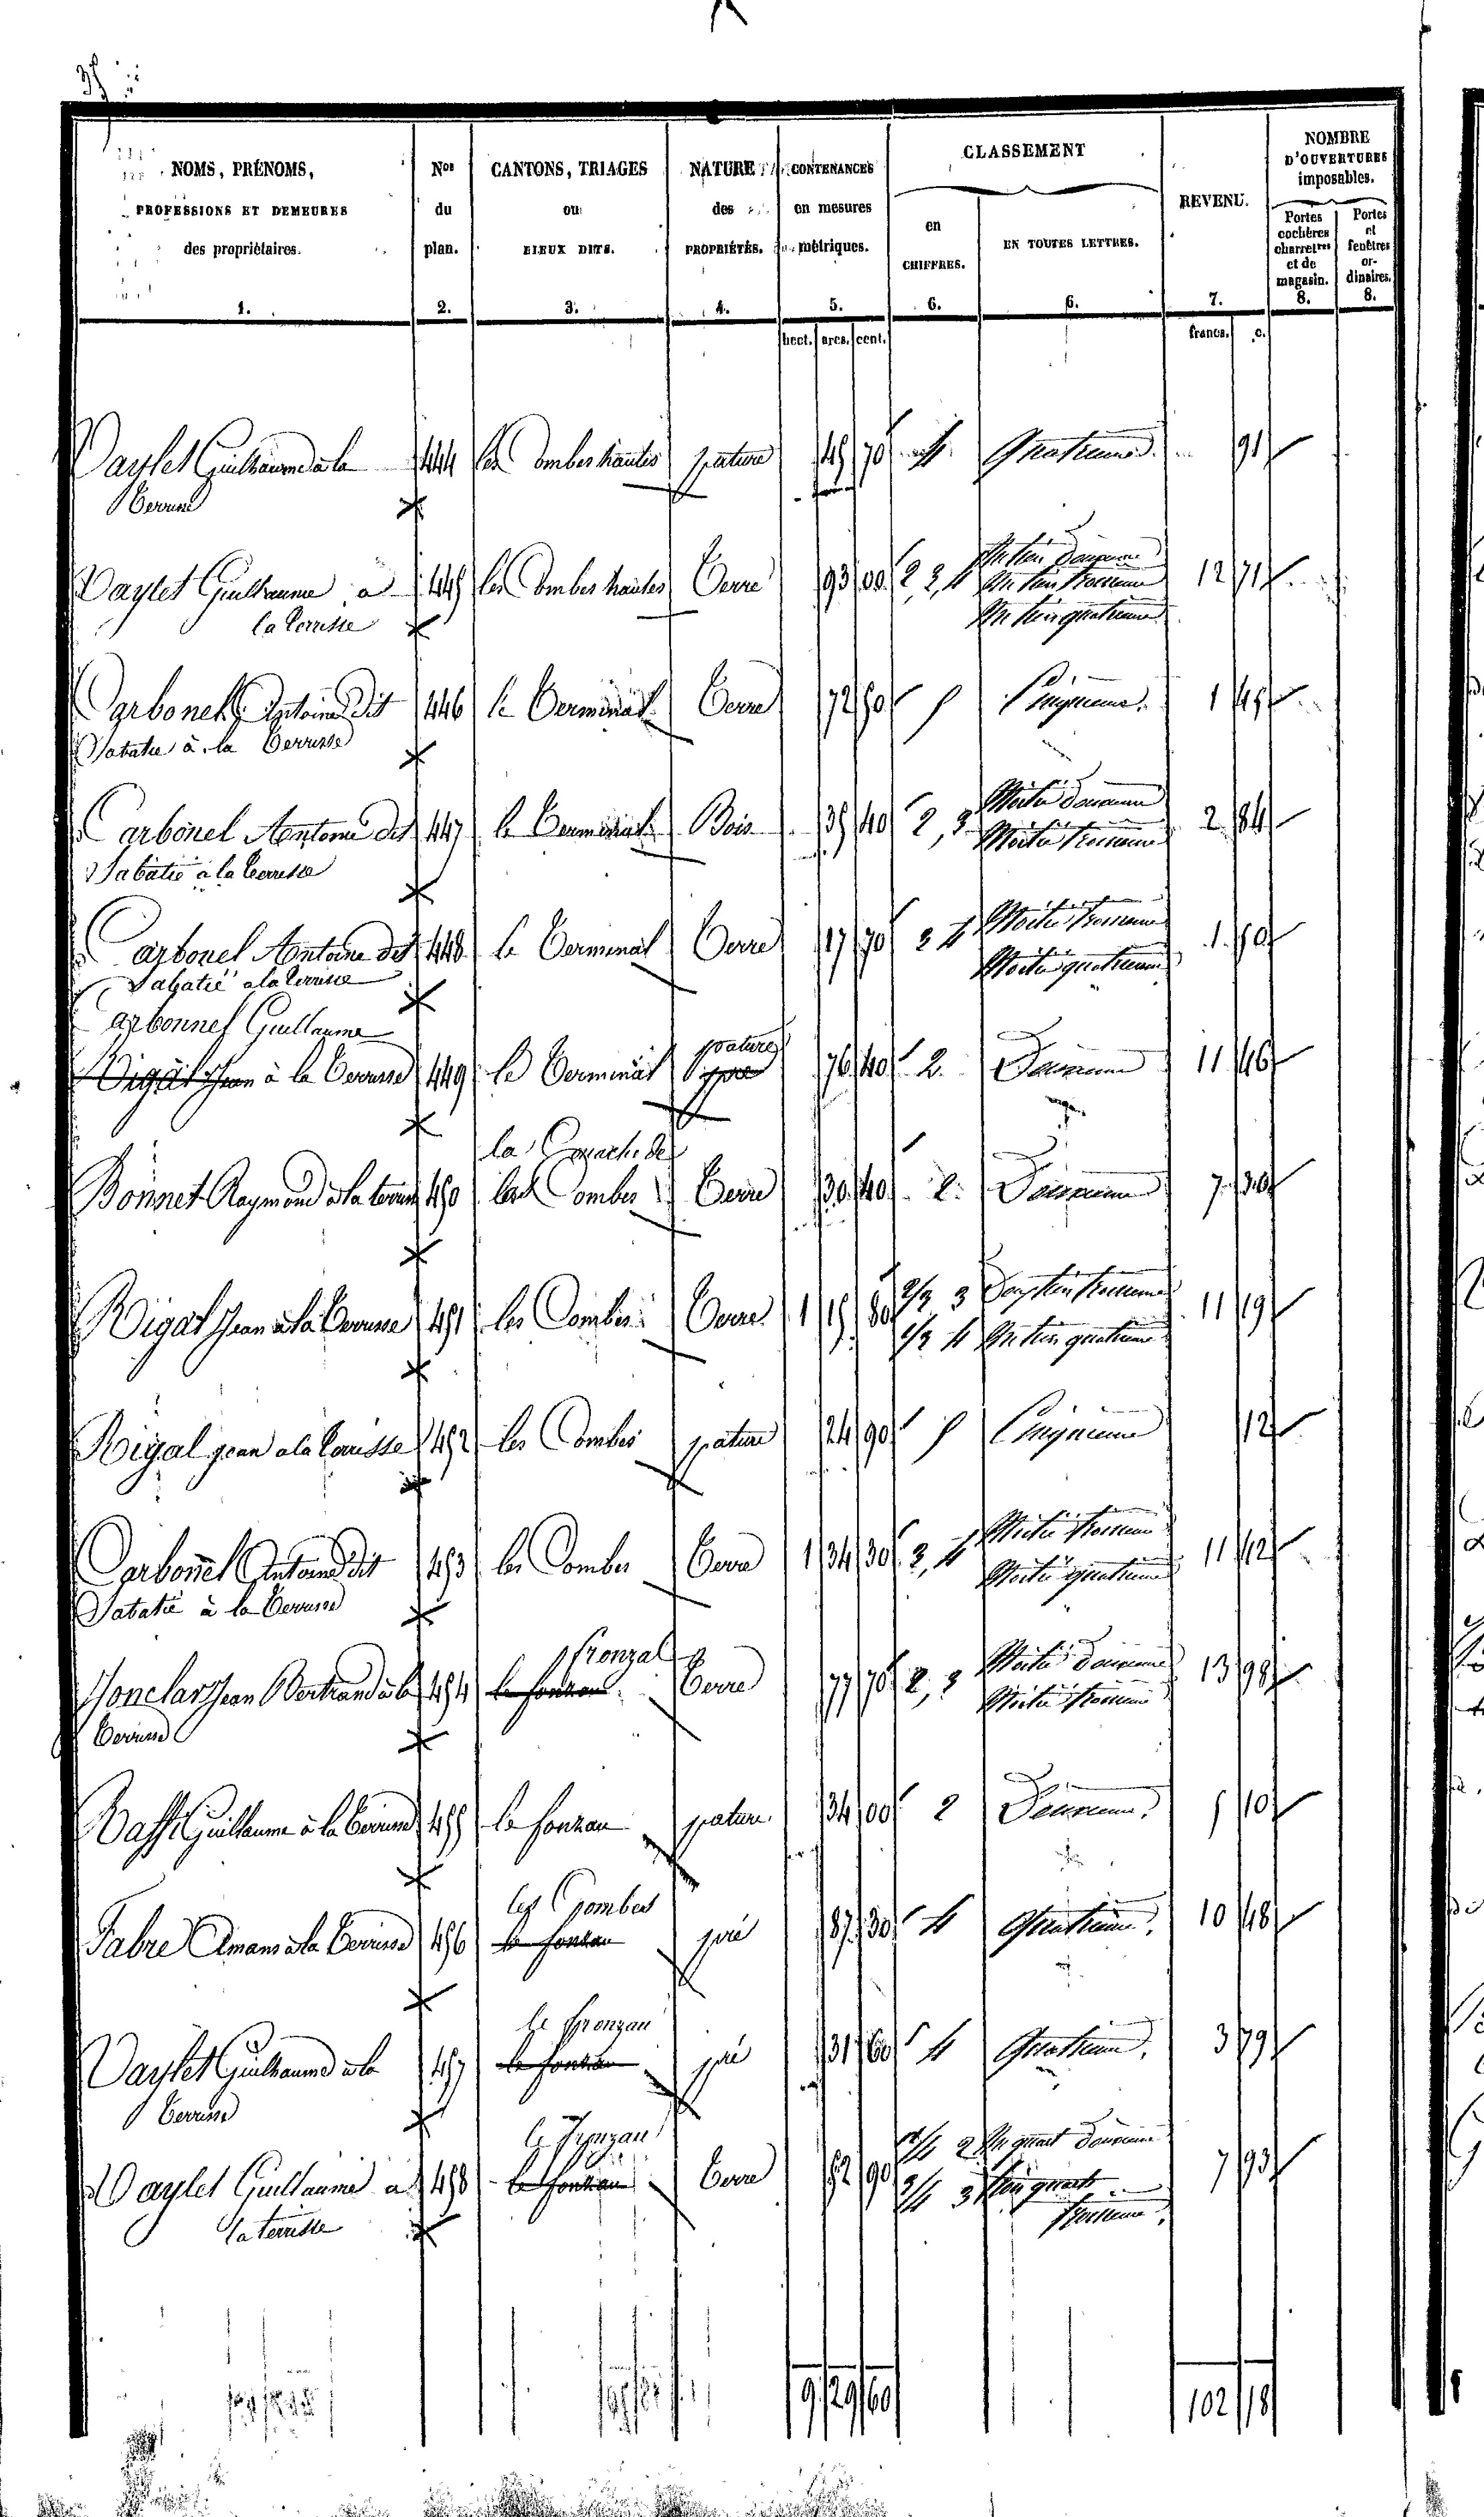 35
NOMS, PRÉNOMS,
PROFESSIONS ET DEMEURES
des propriétaires.
1.
Nos
du
plan.
2.
CANTONS, TRIAGES
ou
LIEUX DITS.
3.
NATURE
des
PROPRIÉTÉS.
4.
CONTENANCES
en mesures
métriques.
5.
CLASSEMENT
en
CHIFFRES.
6.
EN TOUTES LETTRES.
6.
REVENU.
7.
NOMBRE
D'OUVERTURES
imposables.
Portes
cochères
charretres
et de
magasin.
8.
Portes
et
fenêtres
or-
dinaires.
8.
hect. ares. cent.
francs. c.
Vaylet Guillaume à la 444 les Combes hautes pature 45 70 4 Quatrieme. 91
Terrisse
Vaylet Guillaume a 445 les Combes hautes Terre 93 00 2, 3, 4 Un tiers Deuxieme 12 71
la Terrisse Un tiers troisieme
Un tiers quatrieme
Carbonel Antoine dit 446 le Terminal Terre 72 50 5 Cinquieme. 1 45
Sabatié à la Terrisse
Carbonel Antoine dit 447 le Terminal Bois 35 40 2, 3 Moitié deuxieme 2 84
Sabatié à la Terrisse Moitié troisieme
Carbonel Antoine dit 448 le Terminal Terre 17 70 3 4 Moitié troisieme 1 50
Sabatié a la Terrisse Moitié quatrieme
Carbonnel Guillaume
Rigal Jean à la Terrisse 449 le Terminal pature 76 40 2. Deuxieme 11 46
la Crach. de
Bonnet Raymond à la terrisse 450 les Combes Terre 30 40 2. Deuxieme 7 30
Rigal Jean à la Terrisse 451 les Combes Terre 1 15 80 2/3 3 Deux tiers troisieme 11 19
1/3 4 Un tiers quatrieme
Rigal jean a la Terrisse 452 les Combes pature 24 90 5 Cinquieme 12
Carbonel Antoine dit 453 les Combes Terre 1 34 30 3, 4 Moitié troisieme 11 42
Sabatié à la Terrisse Moitié quatrieme
fronzal
Monclar Jean Bertrand à la 454 le fonzau Terre 77 70 2, 3 Moitié deuxieme 13 98
Terrisse Moitié troisieme
Guillaume à la Terrisse 455 le fonzau pature 34 00 2 Deuxieme. 5 10
les Combes
Fabre Amans à la Terrisse 456 le fonzau pré 87 30 4 Quatrieme. 10 48
le fronzau
Vaylet Guillaume à la 457 le fonzau pré 31 60 4 Quatrieme. 3 79
Terrisse
le fronzau
Vaylet Guillaume a 458 le fonzau Terre 52 90 1/4 2 Un quart deuxieme 7 93
la terrisse 3/4 3 trois quarts
troisieme.
9 29 60 102 18